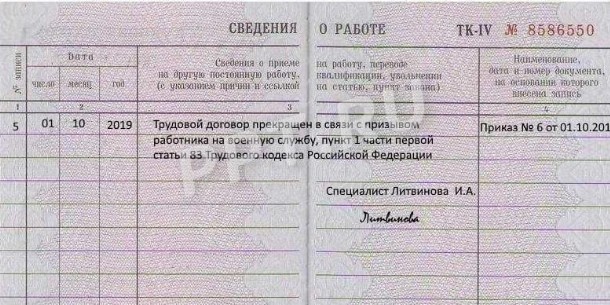 СВЕДЕНИЯ О РАБОТЕ ТК-IV № 8586550
№ записи
Дата
число месяц год
Сведения о приеме на работу, переводе
на другую постоянную работу, квалификации, увольнении
(с указанием причин и ссылкой на статью, пункт закона)
Наименование,
дата и номер документа,
на основании которого
внесена запись
1 2 3 4
5 01 10 2019 Трудовой договор прекращен в связи с призывом Приказ № 6 от 01.10.201
работника на военную службу, пункт 1 части первой
статьи 83 Трудового кодекса Российской Федерации
Специалист Литвинова И.А.
Литвинова
PPT.RU